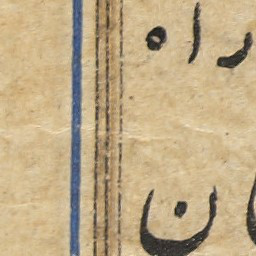 راه
ان